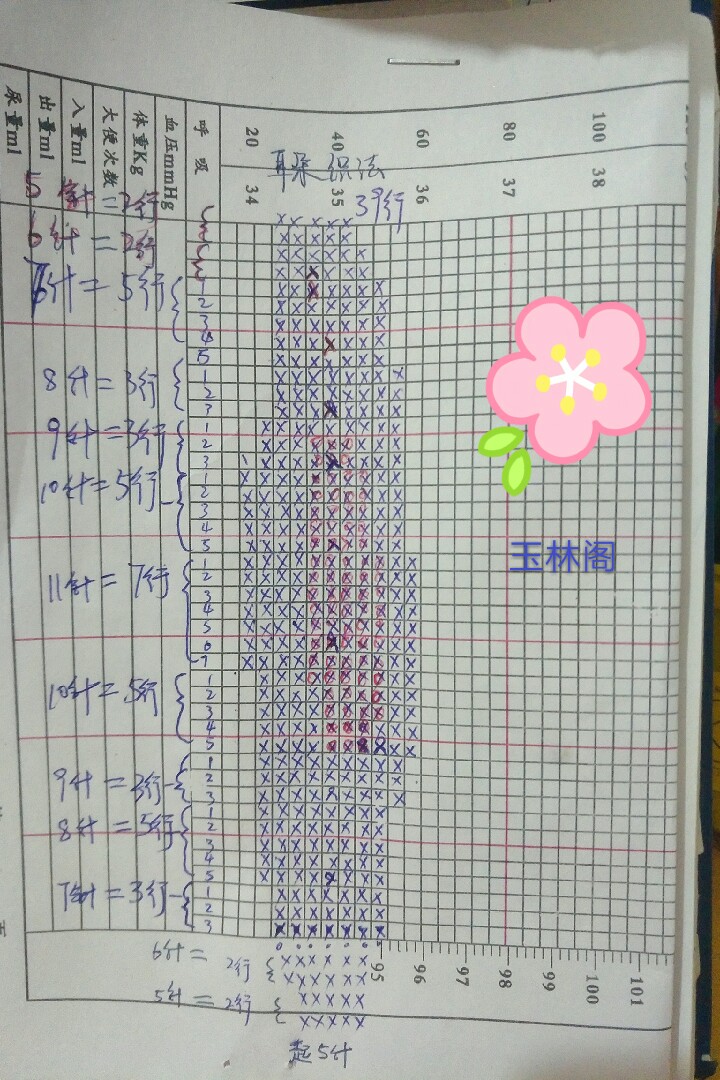 20 40 60 80 100
34 35 36 37 38
呼吸
血压mmHg
体重Kg
大便次数
入量ml
出量ml
尿量ml
耳朵织法
39行
5针=2行
6针=2行
7针=5行
8针=3行
9针=3行
10针=5行
11针=7行
10针=5行
9针=3行
8针=5行
7针=3行
6针=2行
5针=2行
起5针
95 96 97 98 99 100 101
玉林阁